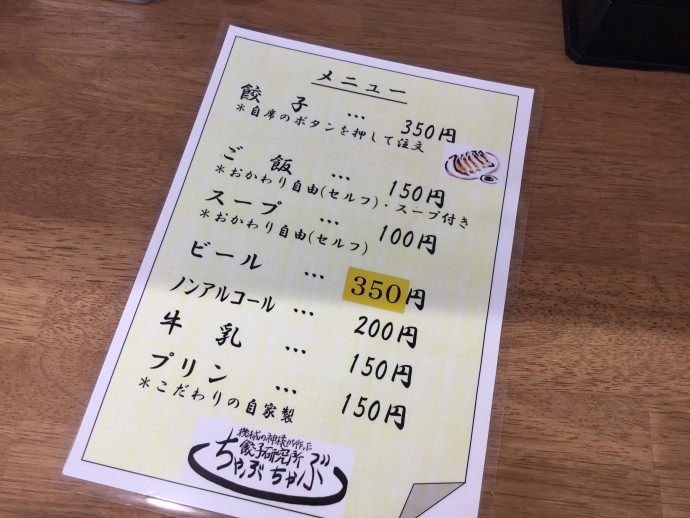 メニュー
餃子 … 350円
＊自席のボタンを押して注文
ご飯 … 150円
＊おかわり自由(セルフ)・スープ付き
スープ … 100円
＊おかわり自由(セルフ)
ビール … 350円
ノンアルコール … 200円
牛乳 … 150円
プリン … 150円
＊こだわりの自家製
機械の神様が作った
餃子研究所
ちゃぶちゃぶ